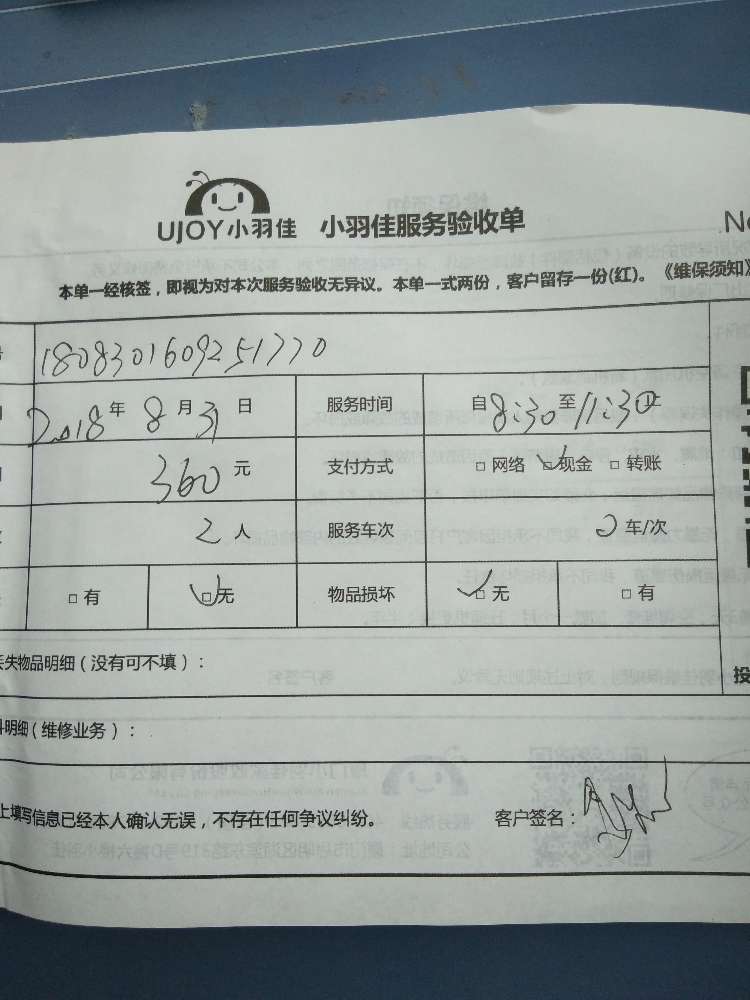 UJOY小羽佳 小羽佳服务验收单
No
本单一经核签，即视为对本次服务验收无异议。本单一式两份，客户留存一份(红)。《维保须知》
180830160925177​0
2018年8月31日 服务时间 自8:30至11:30止
360元 支付方式 □网络 ☑现金 □转账
2人 服务车次 0车/次
□有 ☑无 物品损坏 ☑无 □有
丢失物品明细（没有可不填）： 投
料明细（维修业务）：
上填写信息已经本人确认无误，不存在任何争议纠纷。 客户签名：